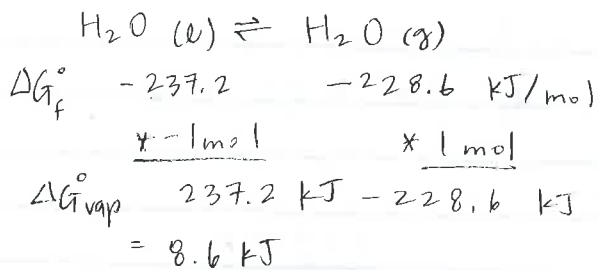 H₂O (l) ⇌ H₂O (g)
ΔG°f -237.2 -228.6 kJ/mol
* -1mol * 1 mol
ΔG°vap 237.2 kJ - 228.6 kJ
= 8.6 kJ